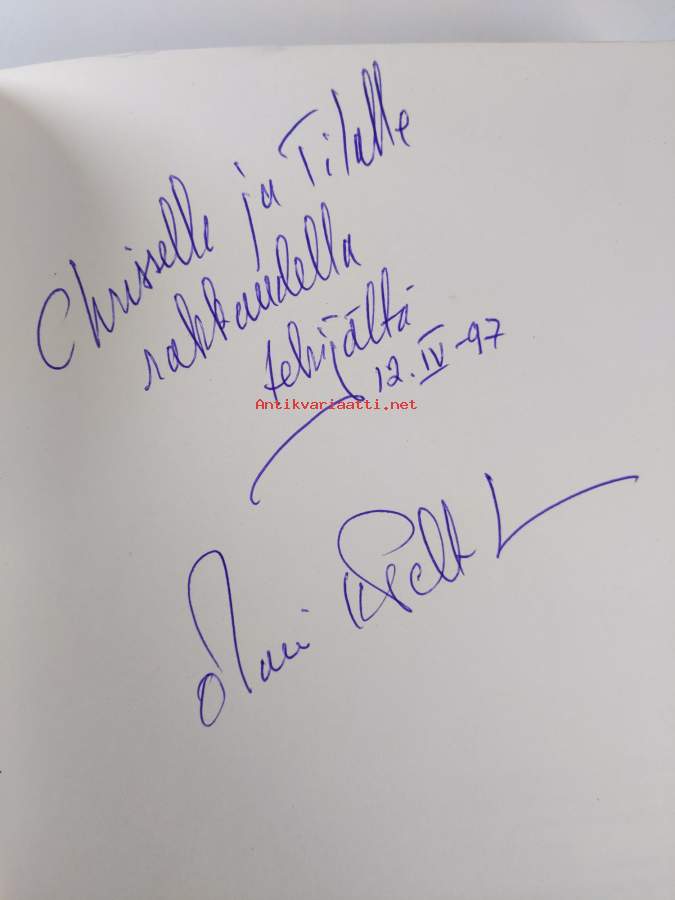 Chrisselle ja Tilalle
rakkaudella
tekijältä
12.IV-97
Antikvariaatti.net